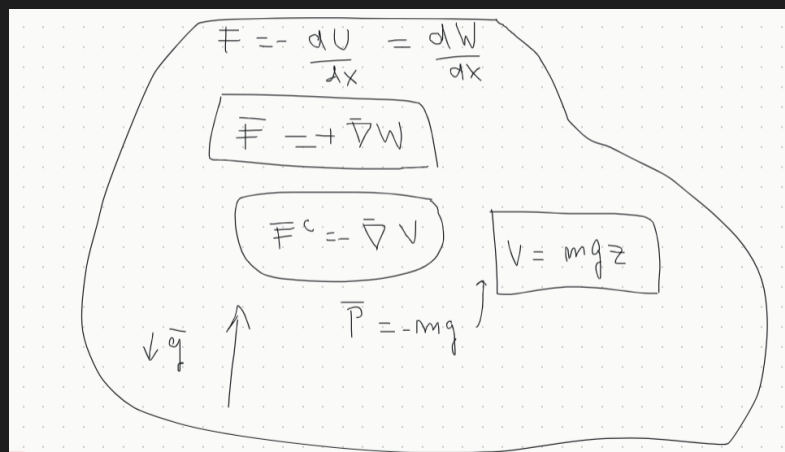 F = - dU/dx = dW/dx
F̅ = + ∇̅W
F̅ᶜ = - ∇̅ V
V = mgz
P̅ = - mg
↓ g̅